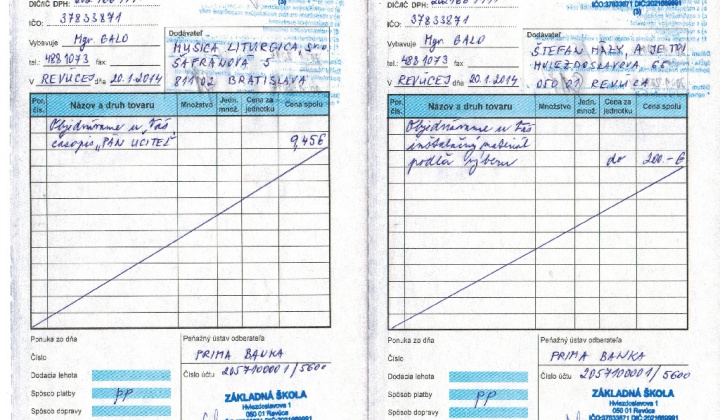 DIČ/IČ DPH:
IČO: 37833871
Vybavuje Mgr. GALO
tel.: 4881073 fax
V REVÚCEJ dňa 20.1.2014
Dodávateľ
MUSICA LITURGICA, s.r.o
ŠAFRÁNOVÁ 5
811 02 BRATISLAVA
Por. čís. Názov a druh tovaru Množstvo Jedn. množ. Cena za jednotku Cena spolu
Objednávame u Vás
časopis „PÁN UČITEĽ" 9,45€
Ponuka zo dňa
Číslo
Dodacia lehota
Spôsob platby PP
Spôsob dopravy
Peňažný ústav odberateľa
PRIMA BANKA
Číslo účtu 2057100001/5600
ZÁKLADNÁ ŠKOLA
Hviezdoslavova 1
050 01 Revúca
DIČ/IČ DPH:
IČO:37833871 DIČ:2021669991
(3)
IČO: 37833871
Vybavuje Mgr. GALO
tel.: 4881073 fax
V REVÚCEJ dňa 20.1.2014
Dodávateľ
ŠTEFAN
HVIEZDOSLAVOVA
050 01 REVÚCA
Por. čís. Názov a druh tovaru Množstvo Jedn. množ. Cena za jednotku Cena spolu
Objednávame u Vás
inštalačný materiál
podľa výberu do 200-€
Ponuka zo dňa
Číslo
Dodacia lehota
Spôsob platby PP
Spôsob dopravy
Peňažný ústav odberateľa
PRIMA BANKA
Číslo účtu 2057100001/5600
ZÁKLADNÁ ŠKOLA
Hviezdoslavova 1
050 01 Revúca
IČO:37833871 DIČ:2021669991